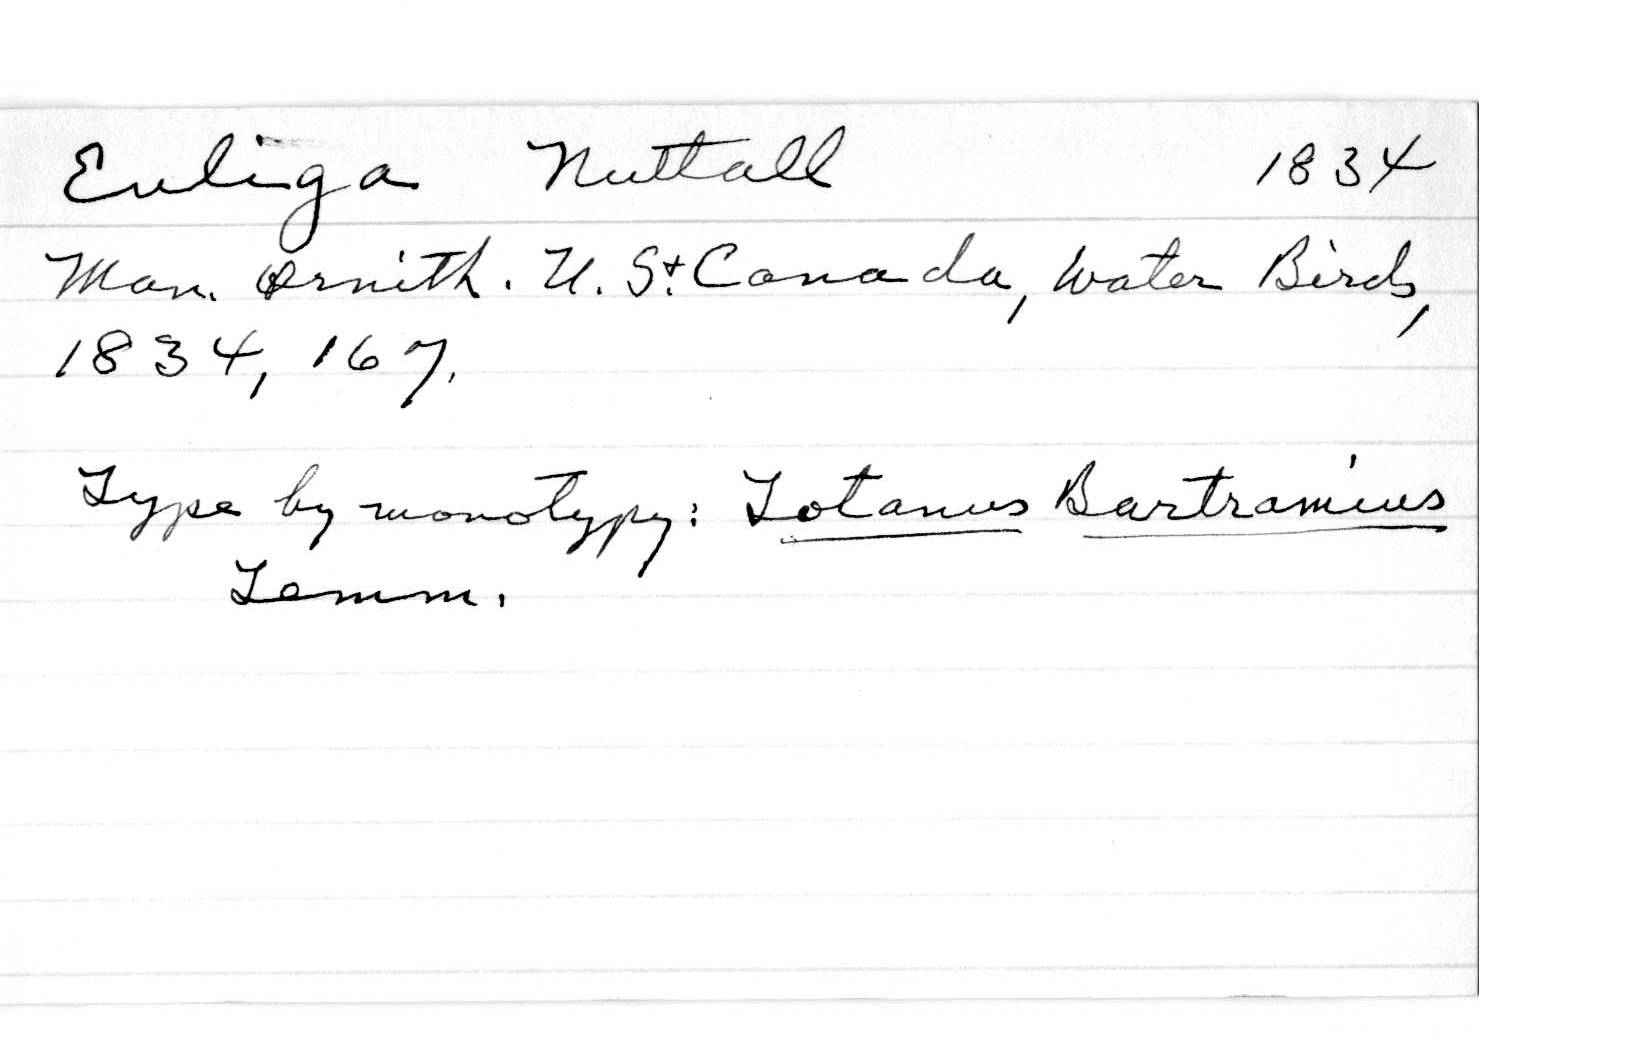 Euliga Nuttall 1834
Man. Ornith. U. S. + Canada, Water Birds,
1834, 167.
Type by monotypy: Totanus Bartramius
Temm.